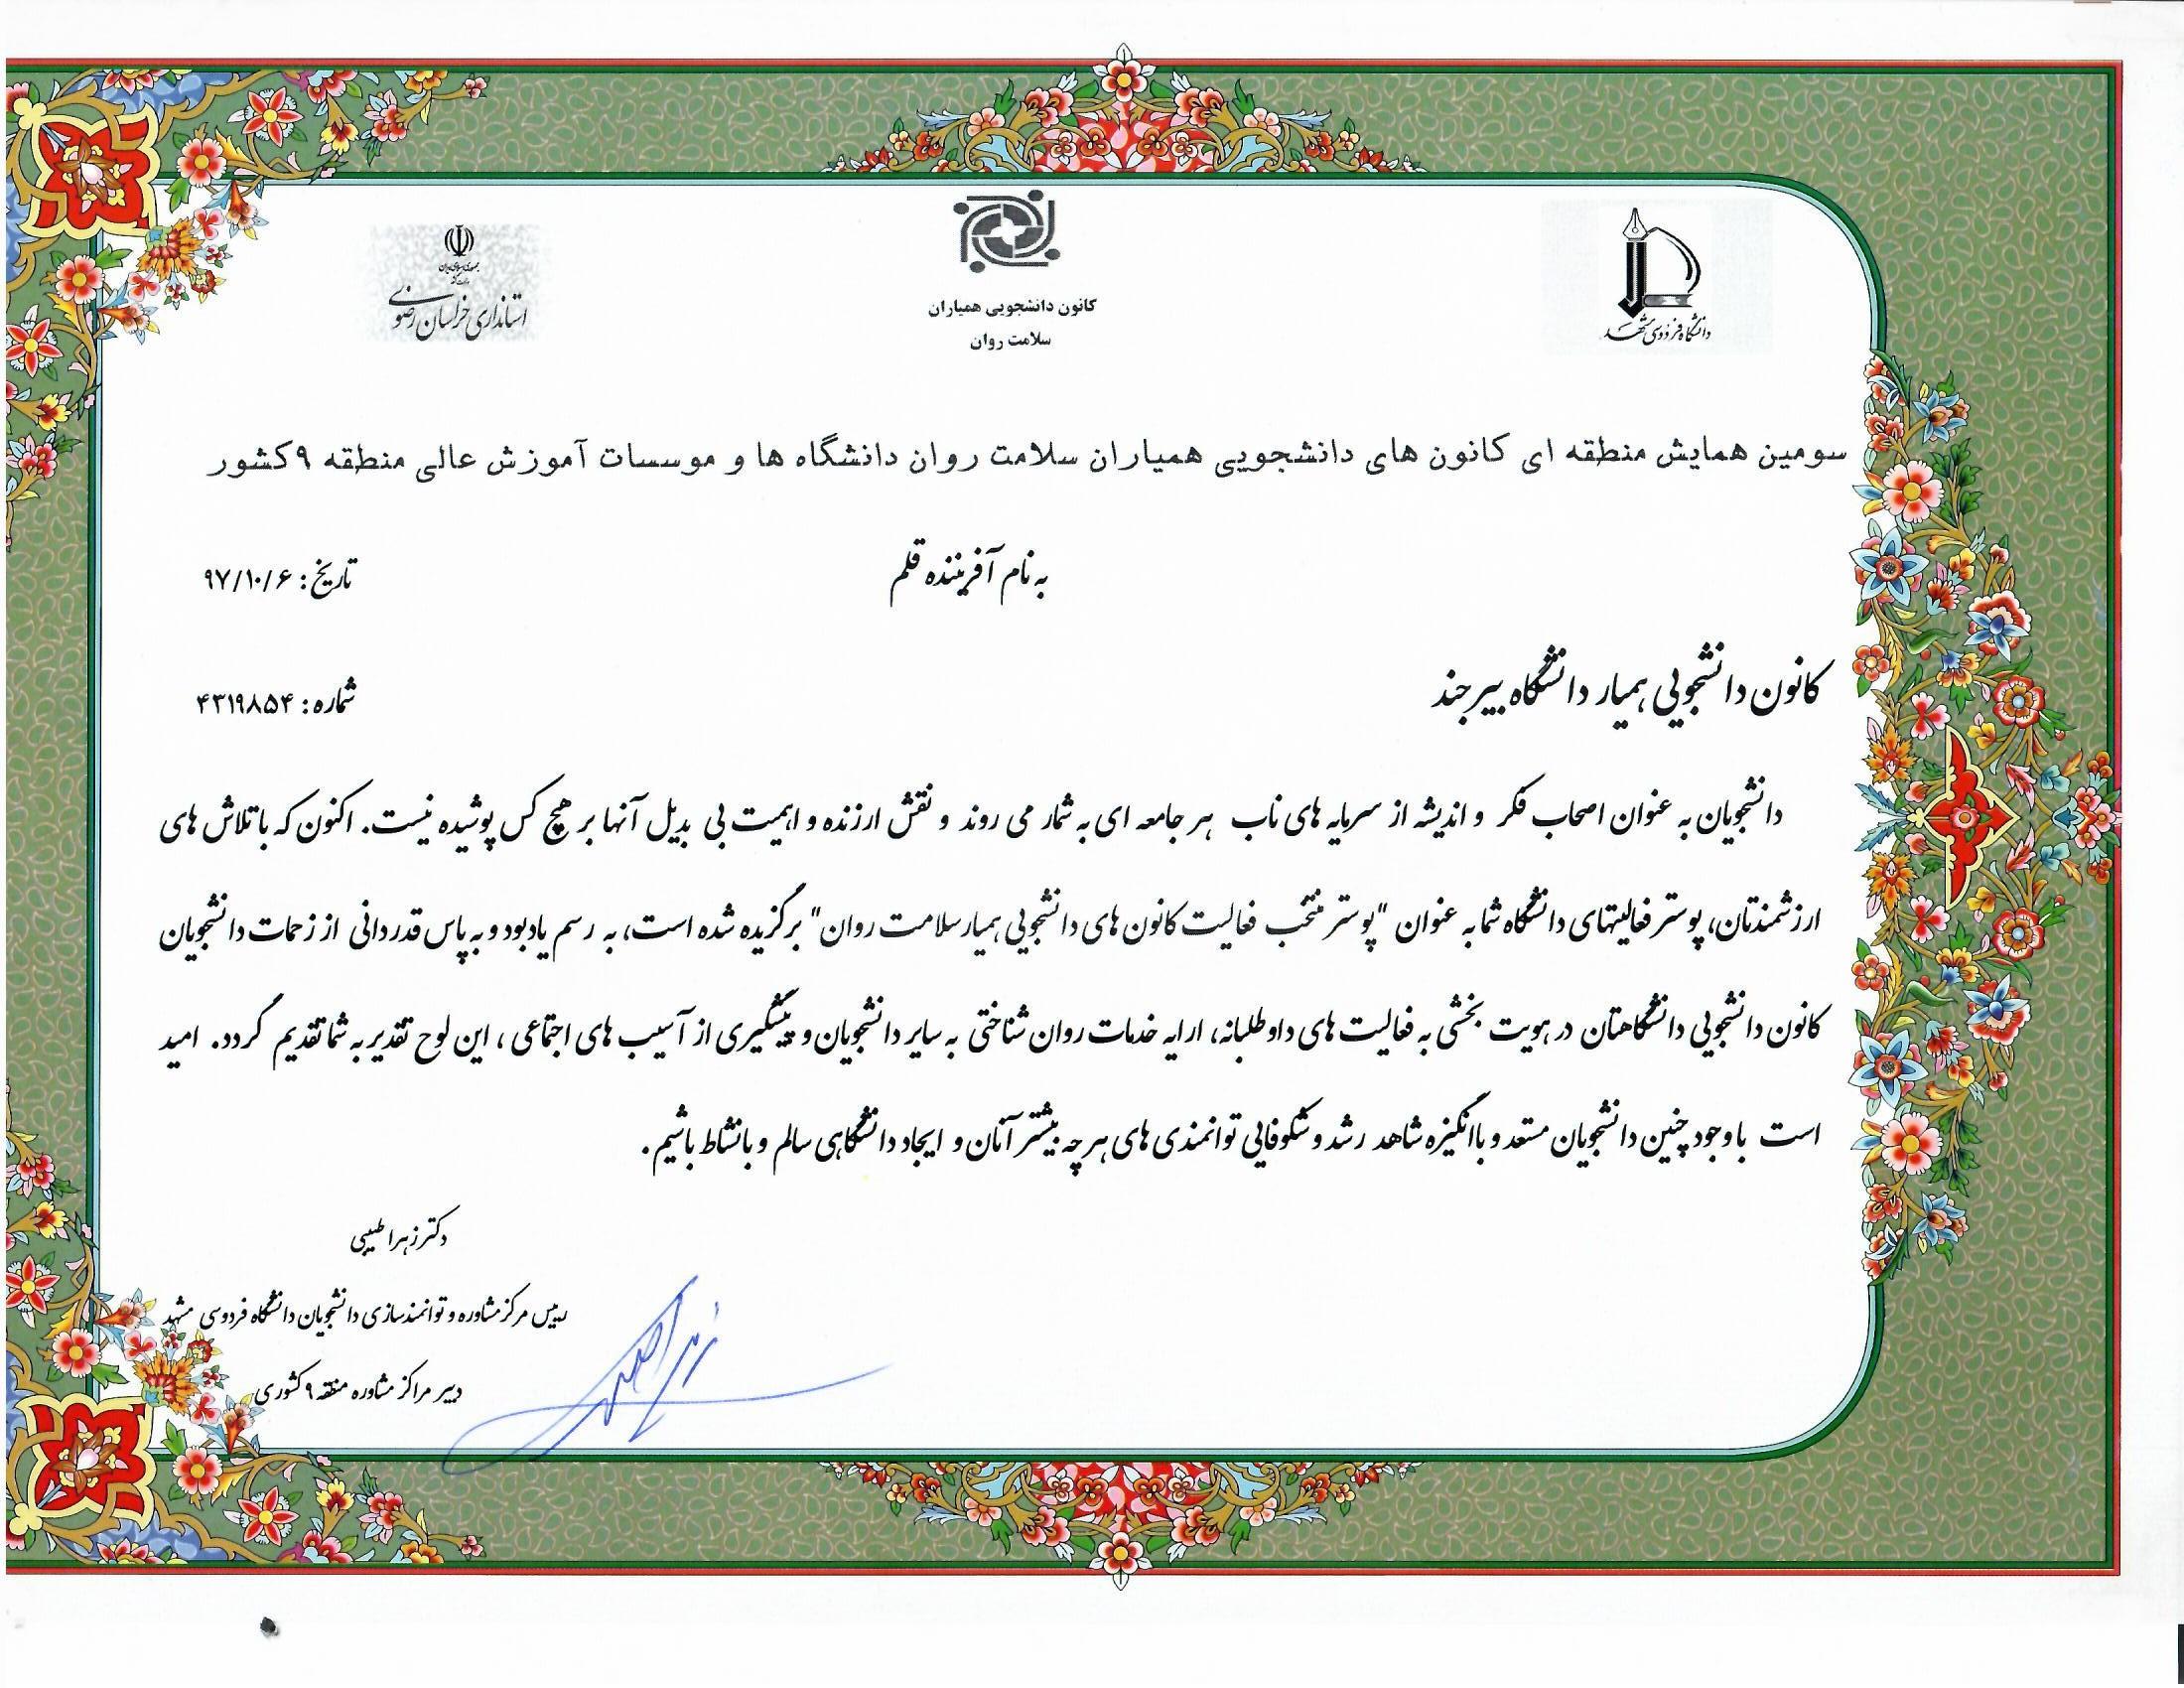 دانشگاه فردوسی مشهد
کانون دانشجویی همیاران
سلامت روان
جمهوری اسلامی ایران
وزارت کشور
استانداری خراسان رضوی
سومین همایش منطقه ای کانون های دانشجویی همیاران سلامت روان دانشگاه ها و موسسات آموزش عالی منطقه ۹ کشور
به نام آفریننده قلم
تاریخ: ۹۷/۱۰/۶
کانون دانشجویی همیار دانشگاه بیرجند
شماره: ۴۳۱۹۸۵۴
دانشجویان به عنوان اصحاب فکر و اندیشه از سرمایه های ناب هر جامعه ای به شمار می روند و نقش ارزنده و اهمیت بی بدیل آنها بر هیچ کس پوشیده نیست. اکنون که با تلاش های
ارزشمندتان، پوستر فعالیتهای دانشگاه شما به عنوان "پوستر منتخب فعالیت کانون های دانشجویی همیار سلامت روان" برگزیده شده است، به رسم یادبود و به پاس قدردانی از زحمات دانشجویان
کانون دانشجویی دانشگاهتان در هویت بخشی به فعالیت های داوطلبانه، ارایه خدمات روان شناختی به سایر دانشجویان و پیشگیری از آسیب های اجتماعی ، این لوح تقدیر به شما تقدیم گردد. امید
است با وجود چنین دانشجویان مستعد و باانگیزه شاهد رشد و شکوفایی توانمندی های هر چه بیشتر آنان و ایجاد دانشگاهی سالم و بانشاط باشیم.
دکتر زهرا طبیبی
رییس مرکز مشاوره و توانمندسازی دانشجویان دانشگاه فردوسی مشهد
دبیر مراکز مشاوره منطقه ۹ کشوری